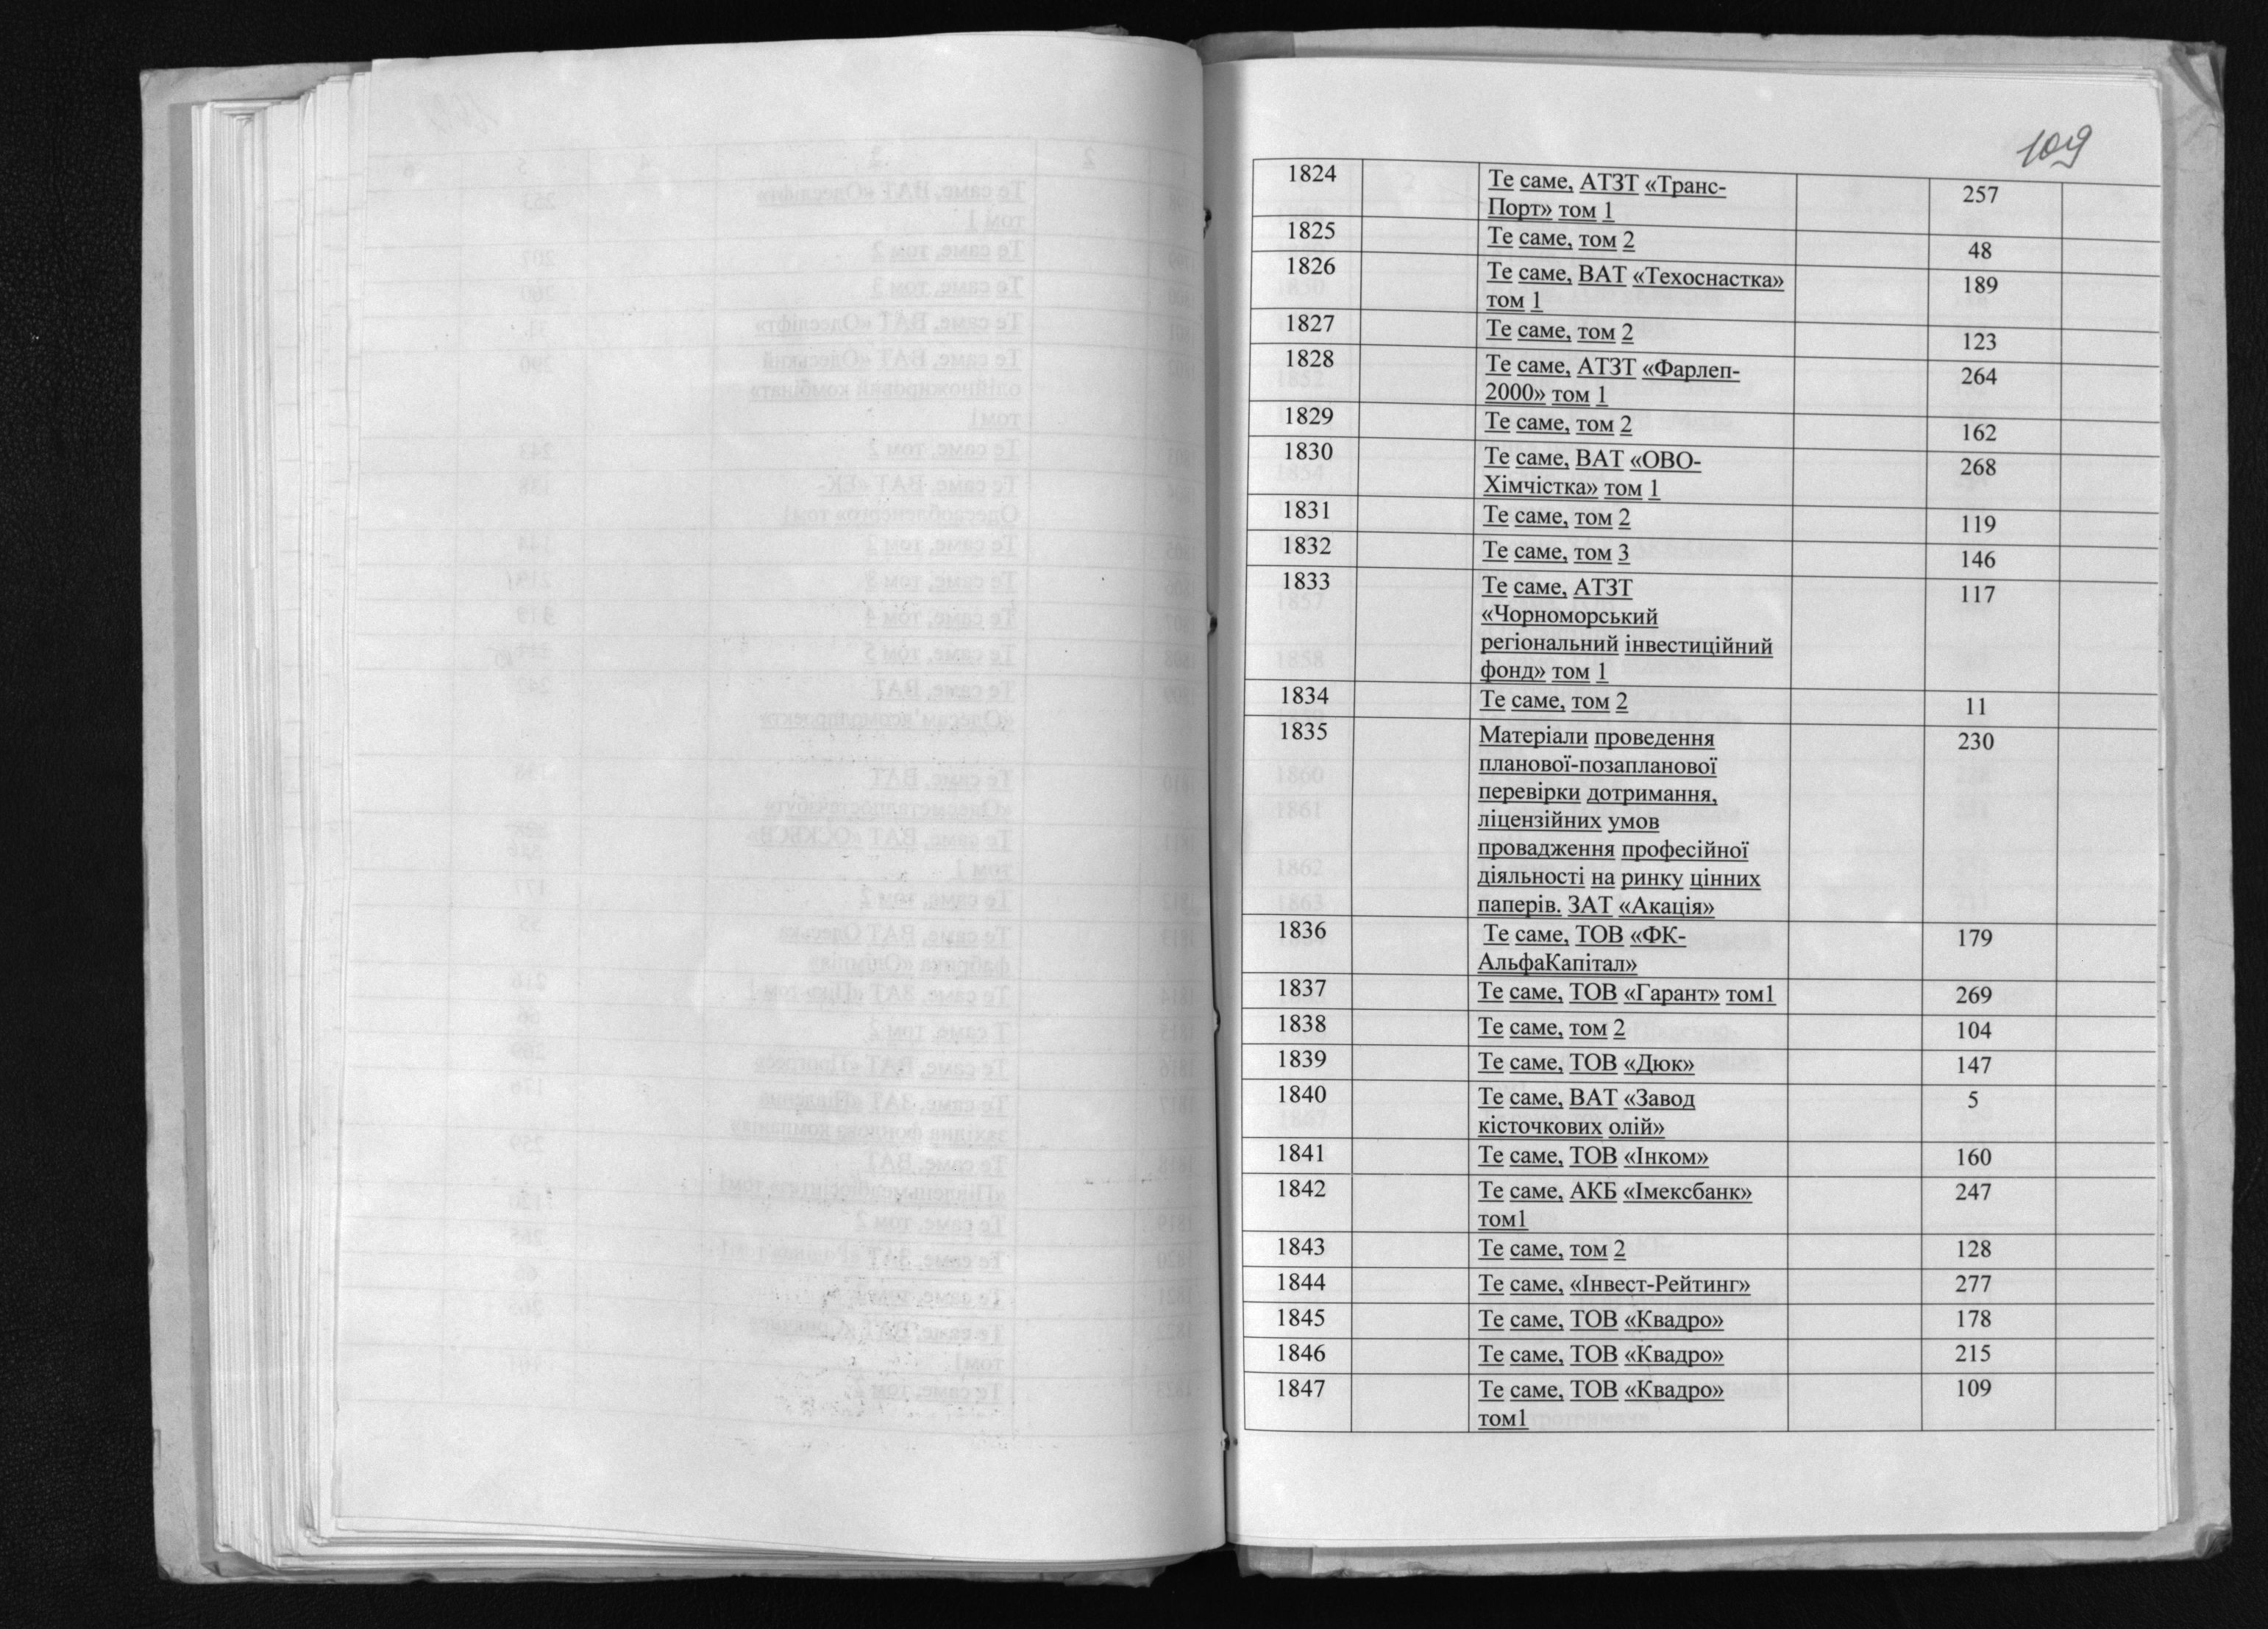 109
1824 Те саме, АТЗТ «Транс- 257
Порт» том 1
1825 Те саме, том 2 48
1826 Те саме, ВАТ «Техоснастка» 189
том 1
1827 Те саме, том 2 123
1828 Те саме, АТЗТ «Фарлеп- 264
2000» том 1
1829 Те саме, том 2 162
1830 Те саме, ВАТ «ОВО- 268
Хімчістка» том 1
1831 Те саме, том 2 119
1832 Те саме, том 3 146
1833 Те саме, АТЗТ 117
«Чорноморський
регіональний інвестиційний
фонд» том 1
1834 Те саме, том 2 11
1835 Матеріали проведення 230
планової-позапланової
перевірки дотримання,
ліцензійних умов
провадження професійної
діяльності на ринку цінних
паперів. ЗАТ «Акація»
1836 Те саме, ТОВ «ФК- 179
АльфаКапітал»
1837 Те саме, ТОВ «Гарант» том1 269
1838 Те саме, том 2 104
1839 Те саме, ТОВ «Дюк» 147
1840 Те саме, ВАТ «Завод 5
кісточкових олій»
1841 Те саме, ТОВ «Інком» 160
1842 Те саме, АКБ «Імексбанк» 247
том1
1843 Те саме, том 2 128
1844 Те саме, «Інвест-Рейтинг» 277
1845 Те саме, ТОВ «Квадро» 178
1846 Те саме, ТОВ «Квадро» 215
1847 Те саме, ТОВ «Квадро» 109
том1